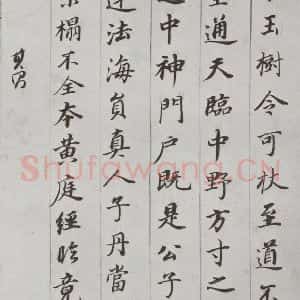 玉樹令可杖至道不
通天臨中野方寸之
中神門户既是公子
法海員真人子丹當
榻不全本黄庭經臨竟
Shufawang.CN